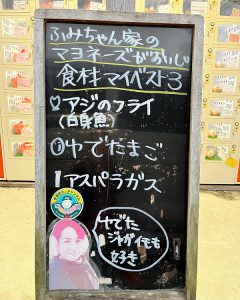 ふみちゃん家の
マヨネーズがおいしい
食材マイベスト3
アジのフライ
(白身魚)
ゆでたまご
アスパラガス
ゆでた
ジャガイモも
好き